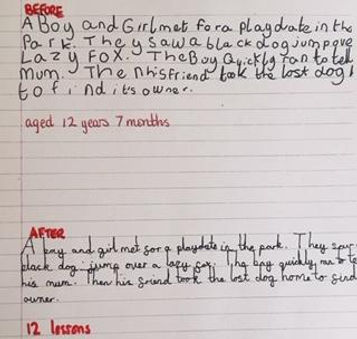 BEFORE
A Boy and Girl met for a playdate in the
Park. They saw a black dog jump over
Lazy Fox. The Boy Quickly ran to tell
Mum. Then his friend took the lost dog
to find it's owner.
aged 12 years 7 months
AFTER
A boy and girl met for a playdate in the park. They
black dog jump over a lazy fox. The boy quickly ran to
his mum. Then his friend took the lost dog home to find
owner.
12 lessons